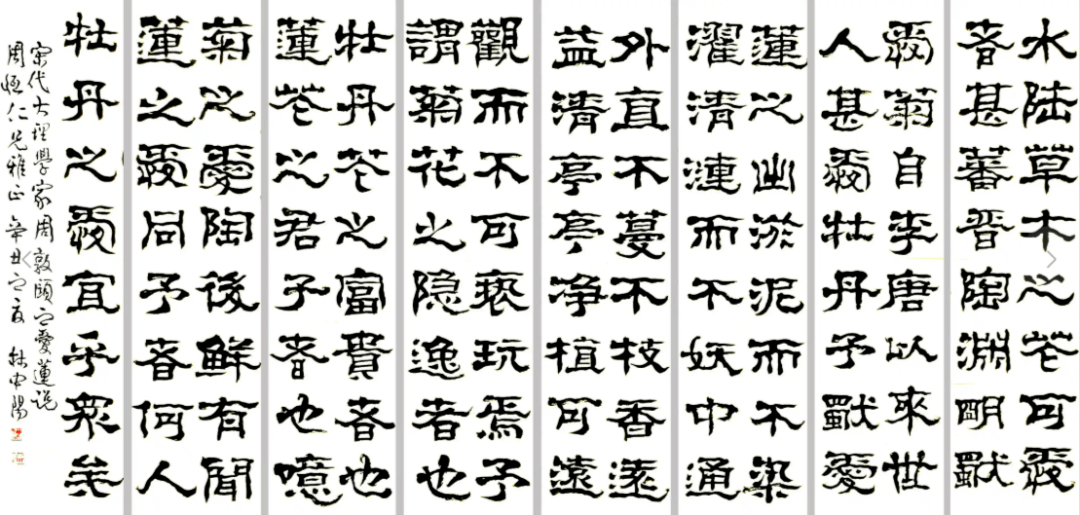 水陆草木之花可愛
者甚蕃晉陶淵明獨
愛菊自李唐以來世
人甚愛牡丹予獨愛
蓮之出淤泥而不染
濯清漣而不妖中通
外直不蔓不枝香遠
益清亭亭净植可遠
觀而不可亵玩焉予
謂菊花之隐逸者也
牡丹花之富貴者也
蓮花之君子者也噫
菊之愛陶後鮮有聞
蓮之愛同予者何人
牡丹之愛宜乎眾矣
宋代大理學家周敦頤之愛蓮说
周恒仁兄雅正 辛丑之夏 林中陽